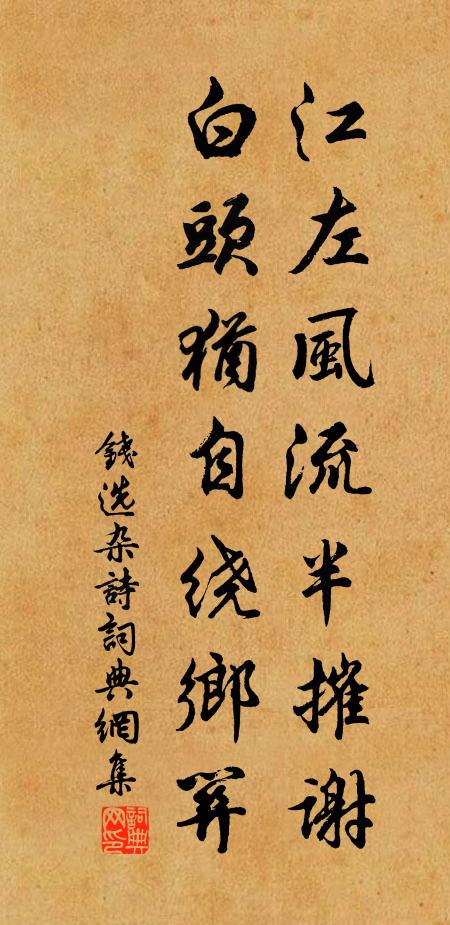 江左風流半摧謝
白頭猶自绕鄉冥
錢选杂詩詞典網集
詞典網印